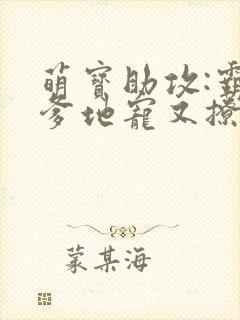 萌寶助攻:霸
爹地寵又撩
蒙某海